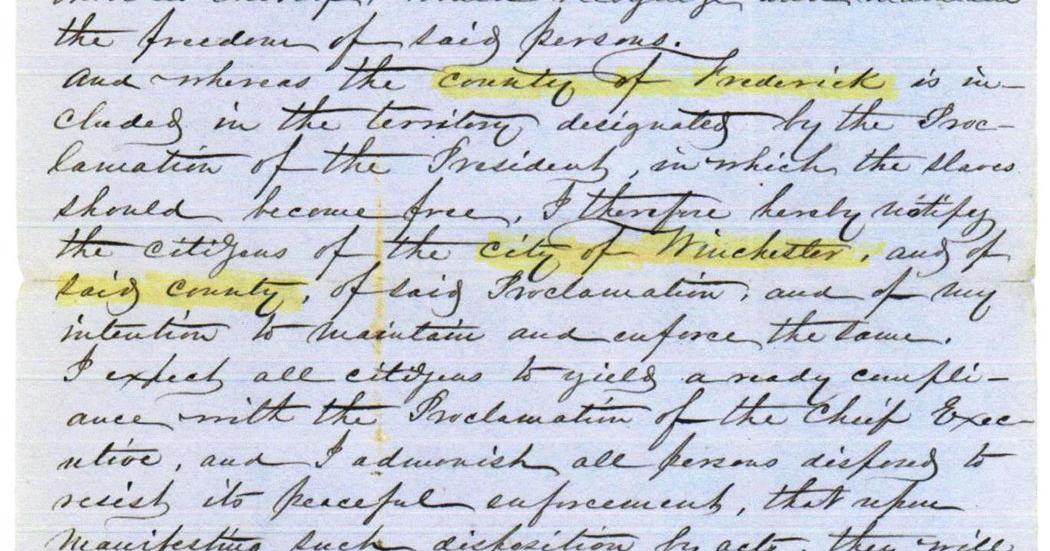 the freedom of said persons.
And whereas the county of Frederick is in-
cluded in the territory designated by the Proc-
lamation of the President, in which the slaves
should become free, I therefore hereby notify
the citizens of the city of Winchester, and of
said county, of said Proclamation, and of my
intention to maintain and enforce the same.
I expect all citizens to yield a ready compli-
ance with the Proclamation of the Chief Exec-
utive, and I admonish all persons disposed to
resist its peaceful enforcement, that upon
manifesting such disposition by acts, they will